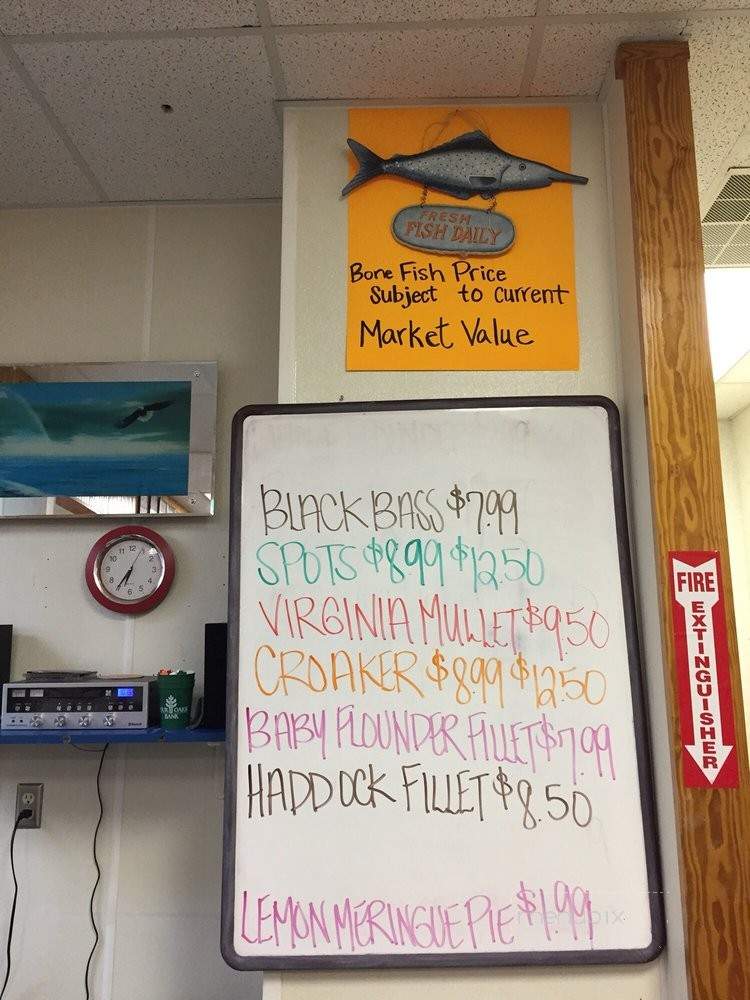 FRESH
FISH DAILY
Bone Fish Price
Subject to current
Market Value
BLACK BASS $7.99
SPOTS $8.99 $12.50
VIRGINIA MULLET $9.50
CROAKER $8.99 $12.50
BABY FLOUNDER FILLET $7.99
HADDOCK FILLET $8.50
LEMON MERINGUE PIE $1.99
FIRE
EXTINGUISHER
12
1
2
3
4
5
6
7
8
9
10
11
BANK